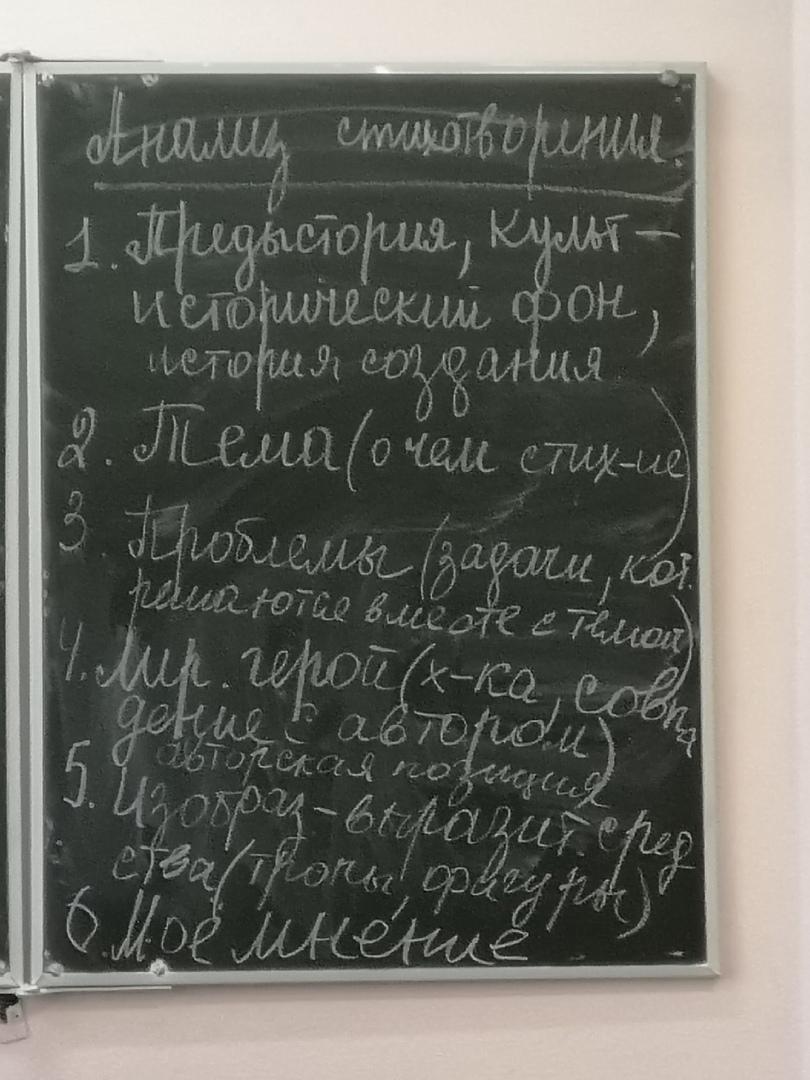 Анализ стихотворения.
1. Предыстория, культ-
исторический фон,
история создания
2. Тема (о чем стих-ие)
3. Проблемы (задачи, кот.
решаются вместе с темой)
4. Лир. герой (х-ка, совпа
дение с автором)
авторская позиция
5. Изобраз-выразит. сред
ства (тропы, фигуры)
6. Моё мнение